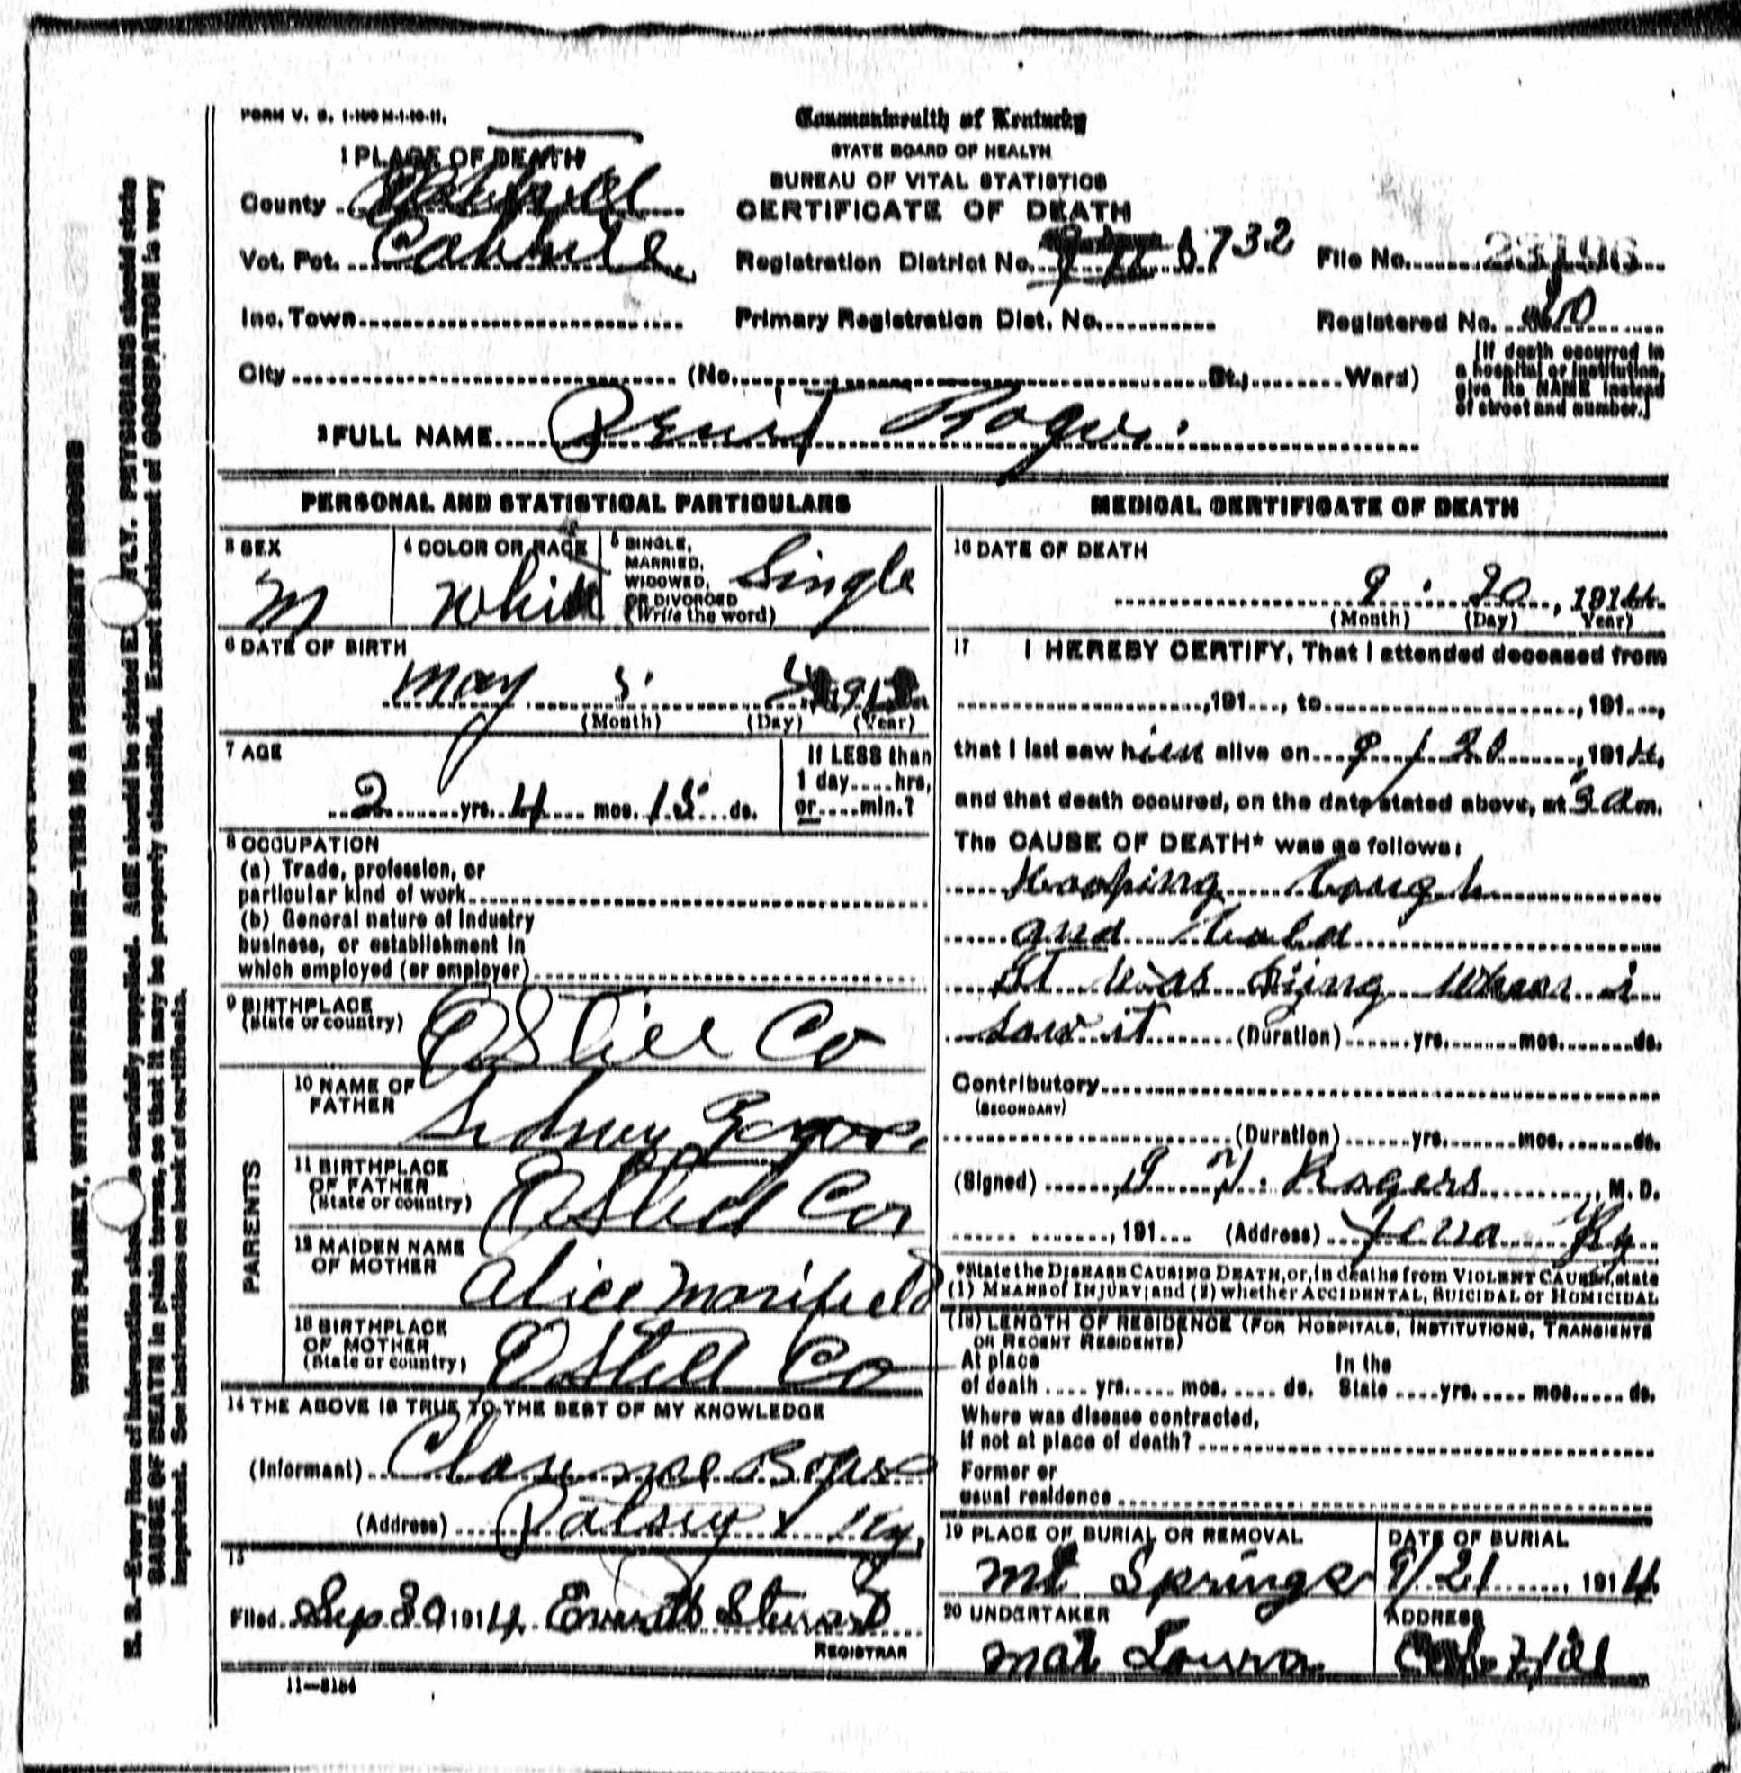 FORM V. S. 1-100 M-1-10-11.
Commonwealth of Kentucky
STATE BOARD OF HEALTH
BUREAU OF VITAL STATISTICS
CERTIFICATE OF DEATH
1 PLACE OF DEATH
County
Vot. Pct.
Registration District No. 6732
File No. 23106
Inc. Town
Primary Registration Dist. No.
Registered No.
City (No. St.; Ward)
[If death occurred in
a hospital or institution,
give its NAME instead
of street and number.]
2 FULL NAME
PERSONAL AND STATISTICAL PARTICULARS
3 SEX
M
4 COLOR OR RACE
White
5 SINGLE,
MARRIED,
WIDOWED,
OR DIVORCED
(Write the word)
Single
6 DATE OF BIRTH
May 5
(Month) (Day) (Year)
7 AGE
2 yrs. 4 mos. 15 ds.
If LESS than
1 day.....hrs,
or.....min.?
8 OCCUPATION
(a) Trade, profession, or
particular kind of work
(b) General nature of Industry
business, or establishment in
which employed (or employer)
9 BIRTHPLACE
(State or country)
EStill Co
PARENTS
10 NAME OF
FATHER
Sidney
11 BIRTHPLACE
OF FATHER
(State or country)
EStill Co
12 MAIDEN NAME
OF MOTHER
Alice Marifield
13 BIRTHPLACE
OF MOTHER
(State or country)
EStill Co
14 THE ABOVE IS TRUE TO THE BEST OF MY KNOWLEDGE
(Informant) Clarence
(Address) Patsey Ky,
15
Filed Sep 30 1914 Everett Stewart
REGISTRAR
11—3184
MEDICAL CERTIFICATE OF DEATH
16 DATE OF DEATH
9 20, 1914
(Month) (Day) Year)
17 I HEREBY CERTIFY, That I attended deceased from
,191..., to ,191...,
that I last saw him alive on 9/20, 1914,
and that death occured, on the date stated above, at 3 a.m.
The CAUSE OF DEATH* was as follows:
Hooping Cough
and Cold
It Was Dijng When i
saw it (Duration) yrs. mos. ds.
Contributory
(SECONDARY)
(Duration) yrs. mos. ds.
(Signed) Rogers, M. D.
, 191... (Address) Ky
*State the DISEASE CAUSING DEATH, or, in deaths from VIOLENT CAUSES, state
(1) MEANS of INJURY; and (2) whether ACCIDENTAL, SUICIDAL or HOMICIDAL
(18) LENGTH OF RESIDENCE (FOR HOSPITALS, INSTITUTIONS, TRANSIENTS
OR RECENT RESIDENTS)
At place In the
of death .... yrs. .... mos. .... ds. State .... yrs. .... mos. .... ds.
Where was disease contracted,
If not at place of death?
Former or
usual residence
19 PLACE OF BURIAL OR REMOVAL
Mt Springs
DATE OF BURIAL
9/21, 1914
20 UNDERTAKER
ADDRESS
WRITE PLAINLY, WITH UNFADING INK—THIS IS A PERMANENT RECORD
N. B.—Every item of information should be carefully supplied. AGE should be stated EXACTLY. PHYSICIANS should state
CAUSE OF DEATH in plain terms, so that it may be properly classified. Exact statement of OCCUPATION is very
important. See instructions on back of certificate.